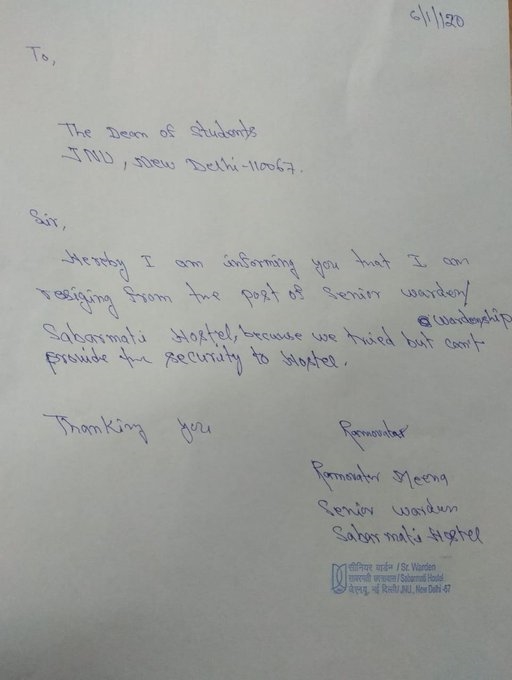 6/1/120
To,
The Dean of Students
JNU, New Delhi-110067.
Sir,
Hereby I am informing you that I am
resiging from the post of Senior warden/
wardenship
Sabarmati Hostel, because we tried but can't
provide the security to Hostel.
Thanking you
Ramavatar
Ramavatar Meena
Senior warden
Sabarmati Hostel
सीनियर वार्डन / Sr. Warden
साबरमती छात्रावास / Sabarmati Hostel
जे.एन.यू., नई दिल्ली/ JNU., New Delhi -67